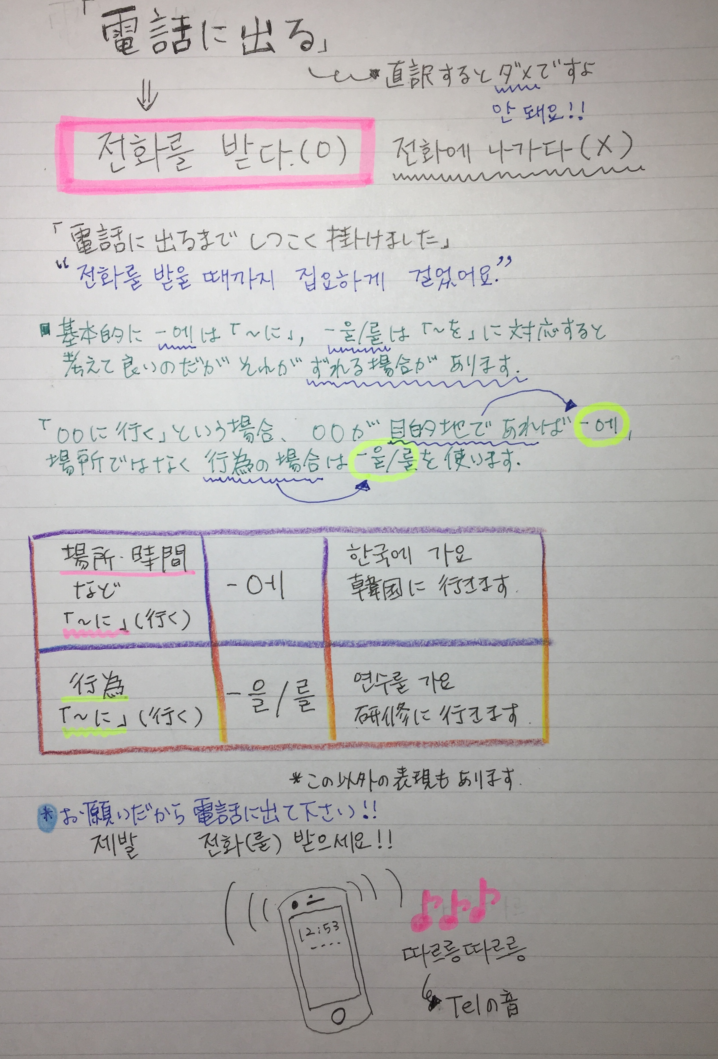 「電話に出る」
⇓
*直訳するとダメですよ
안 돼요!!
전화를 받다.(O)
전화에 나가다(X)
「電話に出るまでしつこく掛けました」
"전화를 받을 때까지 집요하게 걸었어요."
■基本的に -에は「~に」, -을/를は「~を」に対応すると
考えて良いのだが それが ずれる場合が あります.
「○○に行く」という場合、○○が 目的地であれば -에,
場所ではなく 行為の場合は -을/를を使います.
場所·時間
など
「~に」(行く)
-에
한국에 가요
韓国に行きます.
行為
「~に」(行く)
-을/를
연수를 가요
研修に行きます.
*この以外の表現もあります.
*お願いだから 電話に出て下さい!!
제발 전화(를) 받으세요!!
12:53
따르릉따르릉
Telの音